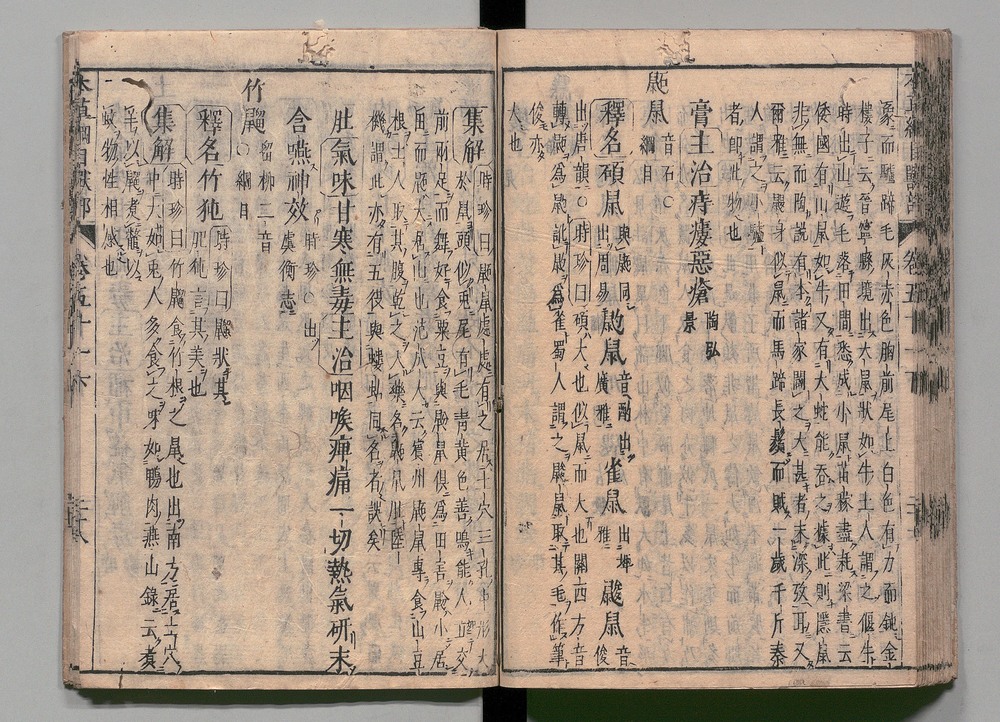 象而驢蹄毛灰赤色胸前尾上白色有力而鈍金
樓子云晉寧縣境出大鼠狀如牛土人謂之偃牛
時出山遊毛落田間悉成小鼠苗稼盡耗梁書云
倭國有山鼠如牛又有大蛇能吞之據此則隱鼠
非無而陶説有本諸家闢之太甚者未深攷耳又
爾雅云鼳身似鼠而馬蹄長鬚而賊一歲千斤秦
人謂之小驢
者即此物也
膏主治痔瘻惡瘡陶弘景
鼫鼠音石○綱目
釋名碩鼠與鼫同出周易鼩鼠音酌出廣雅雀鼠出埤雅鼶鼠音俊
出唐韻○時珍曰碩大也似鼠而大也關西方音
轉鼫為鼩訛鼩為雀蜀人謂之鼶鼠取其毛作筆
俊亦
大也
集解時珍曰鼫鼠處處有之居土穴形大
於鼠頭似兔尾有毛青黄色善鳴能人立交
前兩足而舞好食粟豆與鼢鼠俱為田害鼢小居
田而鼫大居山也范成大云賓州鼫鼠專食山豆
根土人取其腹乾之入藥名鼫鼠肚陸
機謂此亦有五伎與螻蛄同名者誤矣
肚氣味甘寒無毒主治咽喉痺痛一切熱氣研末
含嚥神效時珍○出虞衡志
竹鼺留柳二音○綱目
釋名竹㹠時珍曰鼺狀其肥㹠言其美也
集解時珍曰竹鼺食竹根之鼠也出南方居土穴
中大如兔人多食之味如鴨肉燕山錄云煮
羊以鼺煮鼈以
蚊物性相感也
本草綱目獸部
卷五十一下